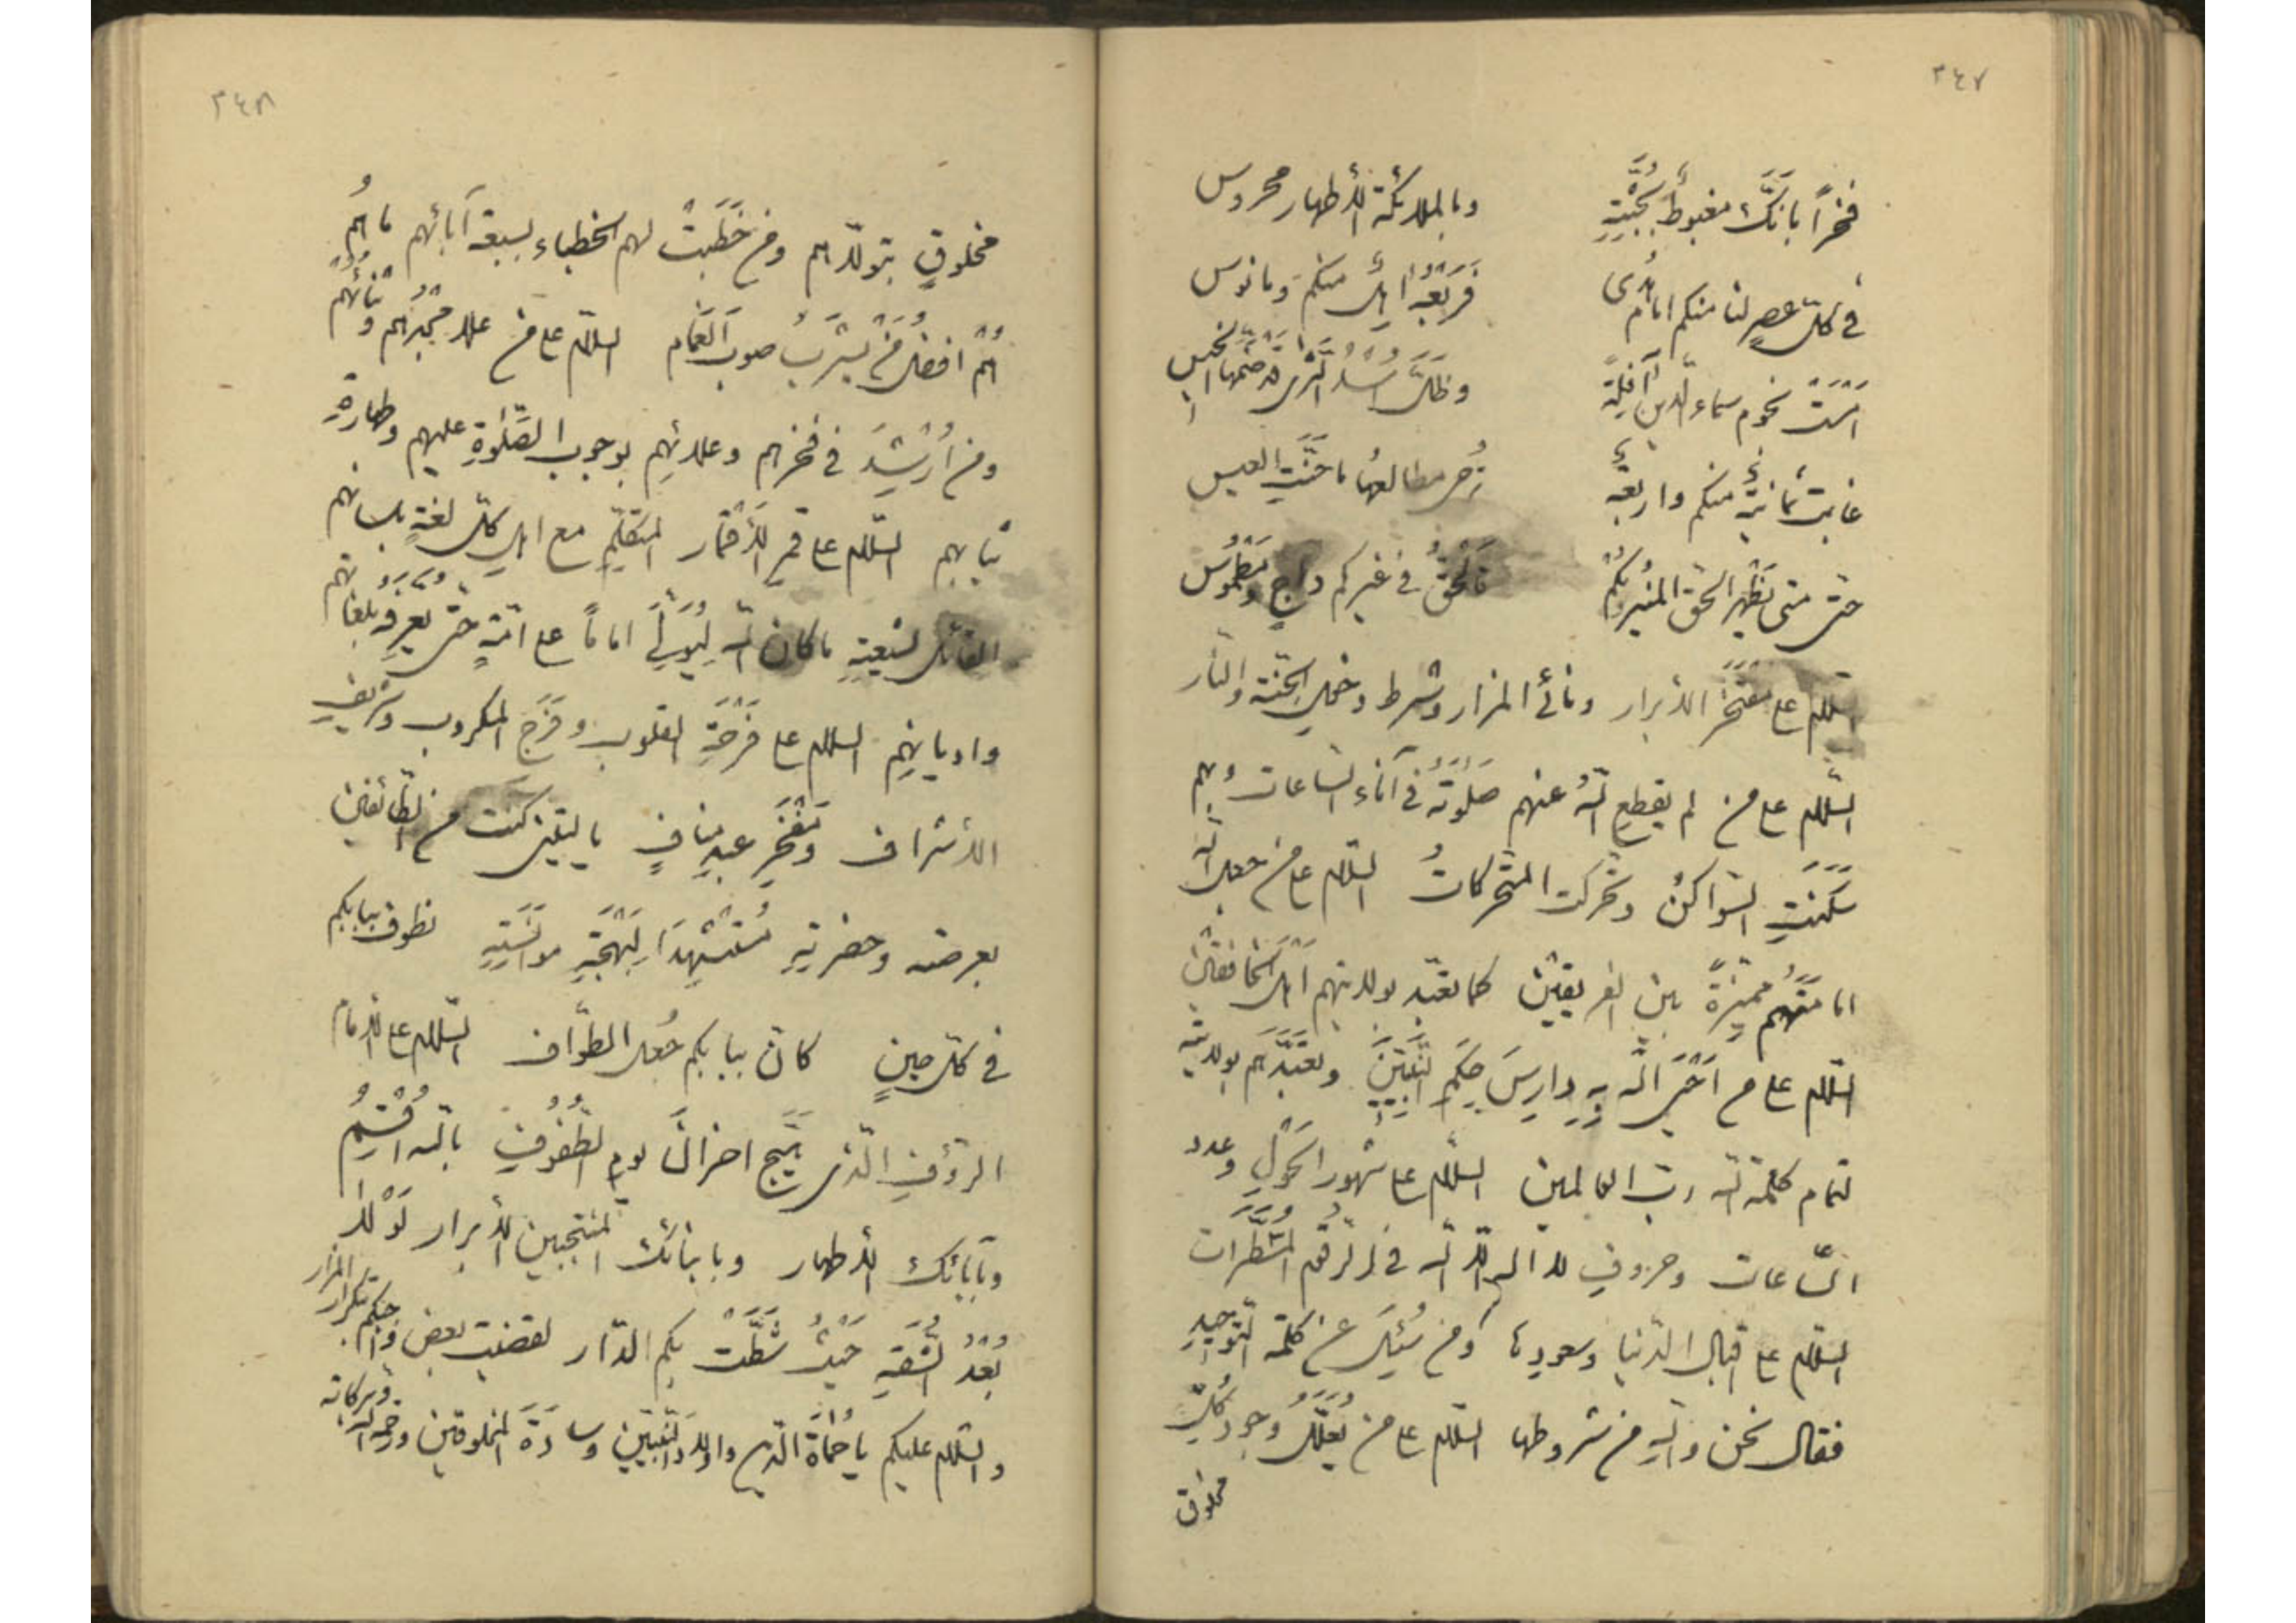 ٣٤٧
فخراً بانّك مغبوطٌ بجُثّتِهِ وبالملائكة الأطهار محروس
في كلّ عصرٍ لنا منكم امامُ هدىً فَرَبْعُهُ اهل منكم ومانوس
امست نجوم سماء الدّين آفلةً وظلّ اُسْدُ الثّرى قد ضمّها الخيس
غابت ثمانيةٌ منكم واربعةٌ تُرجى مطالعها ما حنّتِ العيس
حتّى متى يَظْهر الحقّ المنيرُ بكُمْ فالحقّ في غيركم داجٍ ومطموس
السّلام على مفتخر الأبرار ونائي المزار وشرط دخول الجنّة والنّار
السّلام على من لم يقطع اللّه عنهم صلوته في آناء السّاعات وبهم
سكنتِ السّواكنُ وتحرّكت المتحرّكاتُ السّلام على من جعل اللّه
امامتهم مميّزةً بين الفريقين كما تعبّد بولايتهم اهل الخافقين
السّلام على من احيى اللّه به دارسَ حِكَمِ النّبيّين وتعبّدهم بولايته
لتمام كلمة اللّه ربّ العالمين السّلام على شهور الحَوْلِ وعدد
السّاعات وحروفِ لا اله الّا اللّه في الرّقوم المسطّرات
السّلام على اقبال الدّنيا وسعودها ومن سُئِلَ عن كلمة التّوحيدِ
فقال نحن واللّه من شروطها السّلام على من يُعلَّل وجود كلّ
مخلوق
٣٤٨
مخلوقٍ بتولّاهم ومن خطبتْ لهم الخطباء بسبعة آبائهم ما هُمُ
هُمْ افضل من يشربُ صوب الغمام السّلام على من علا مجدهم وبناؤهم
ومن اُنْشِدَ في فخرهم وعلائهم بوجوب الصّلوةِ عليهم وطهارةِ
ثيابهم السّلام على قمر الأقمار المتكلّم مع اهل كلّ لغةٍ بلسانهم
القائل لشيعته ما كان اللّه ليُولّي اماماً على امّةٍ حتّى يُعرّفه بلغاتهم
واديانهم السّلام على فَرْحَةِ القلوب وفَرَجِ المكروب وشريفِ
الأشراف ومَفْخَرِ عبدِ منافٍ يا ليتني كنت من الطّائفين
بعرصته وحضرته مُسْتَشْهِداً لبَهْجَةِ مؤانسته نطوف ببابكم
في كلّ حينٍ كانّ ببابكم جُعل الطّواف السّلام على الأمام
الرّؤفِ الّذي هيّج احزانَ يومِ الطّفوفِ باللّه اُقْسِمُ
وبآبائك الأطهار وبابنائك المنتجبين الأبرار لَوْلا
بُعْدُ الشُّقّةِ حيثُ شطّتْ بكم الدّار لقضيت بعض واجبكم بتكرار المزار
والسّلام عليكم يا حُماةَ الدّين واولاد النّبيّين وسادةَ المخلوقين ورحمة اللّه وبركاته